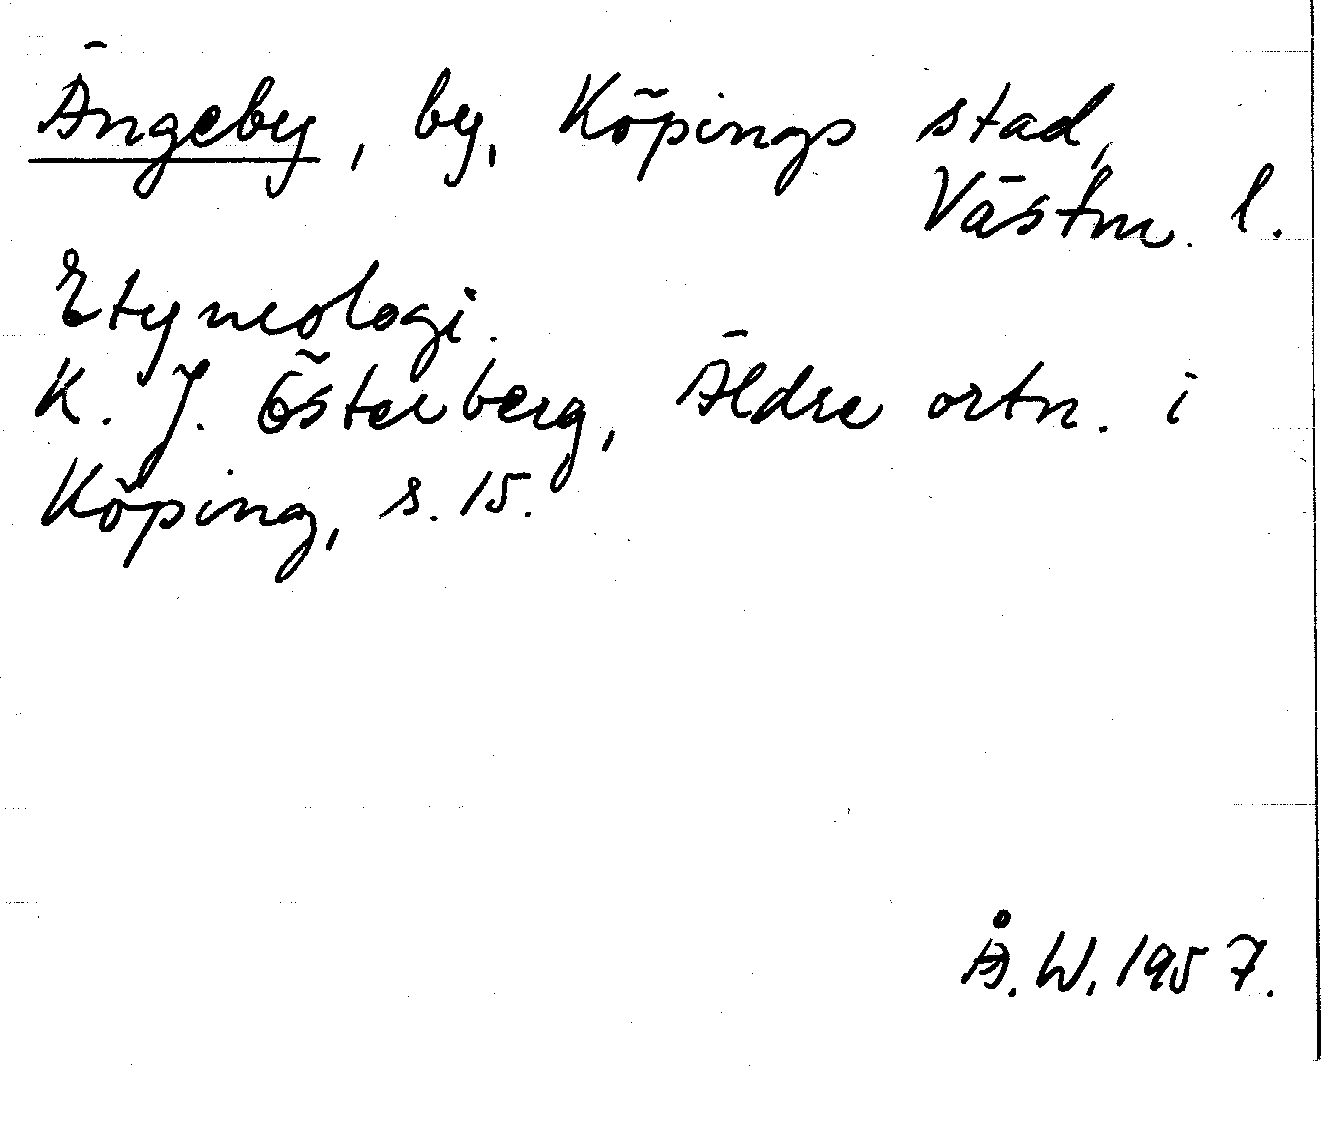 Ängeby, by, Köpings stad,
Västm. l.
Etymologi.
K. J. Österberg, Äldre ortn. i
Köping, s. 15.
Å. W. 1957.